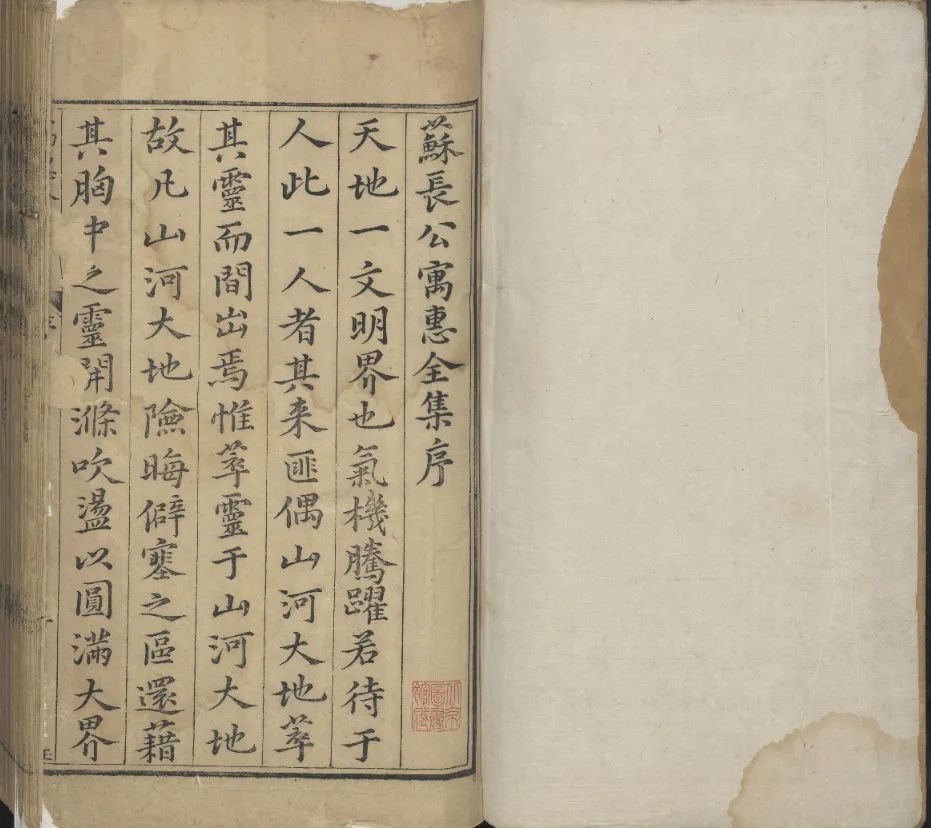 蘇長公寓惠全集序
天地一文明界也氣機騰躍若待于
人此一人者其来匪偶山河大地萃
其靈而間出焉惟萃靈于山河大地
故凡山河大地險晦僻塞之區還藉
其胸中之靈開滌吹盪以圓滿大界